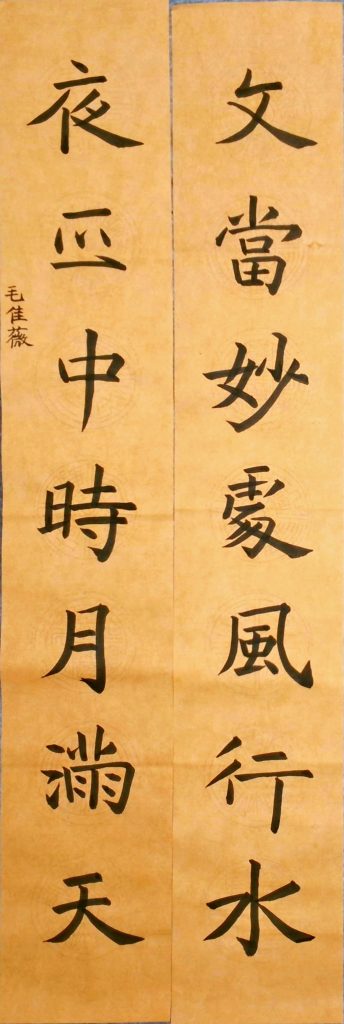 文當妙處風行水
夜正中時月滿天
毛佳薇